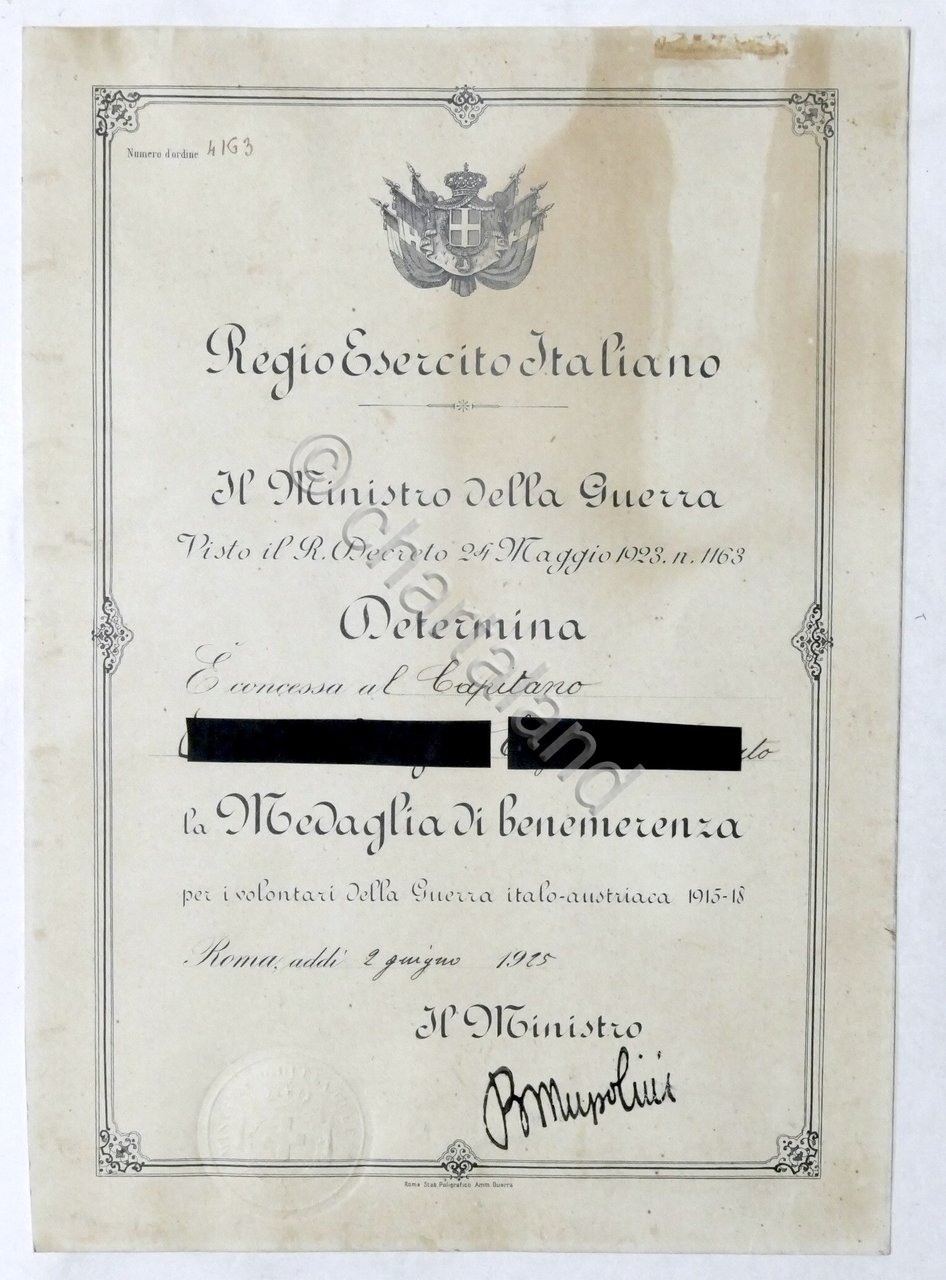 Numero d'ordine 4163
Regio Esercito Italiano
Il Ministro della Guerra
Visto il R. Decreto 24 Maggio 1923. n. 1163
Determina
È concessa al Capitano
la Medaglia di benemerenza
per i volontari della Guerra italo-austriaca 1915-18
Roma, addì 2 giugno 1925
Il Ministro
BMussolini
Roma Stab. Poligrafico Amm. Guerra
© chartaland